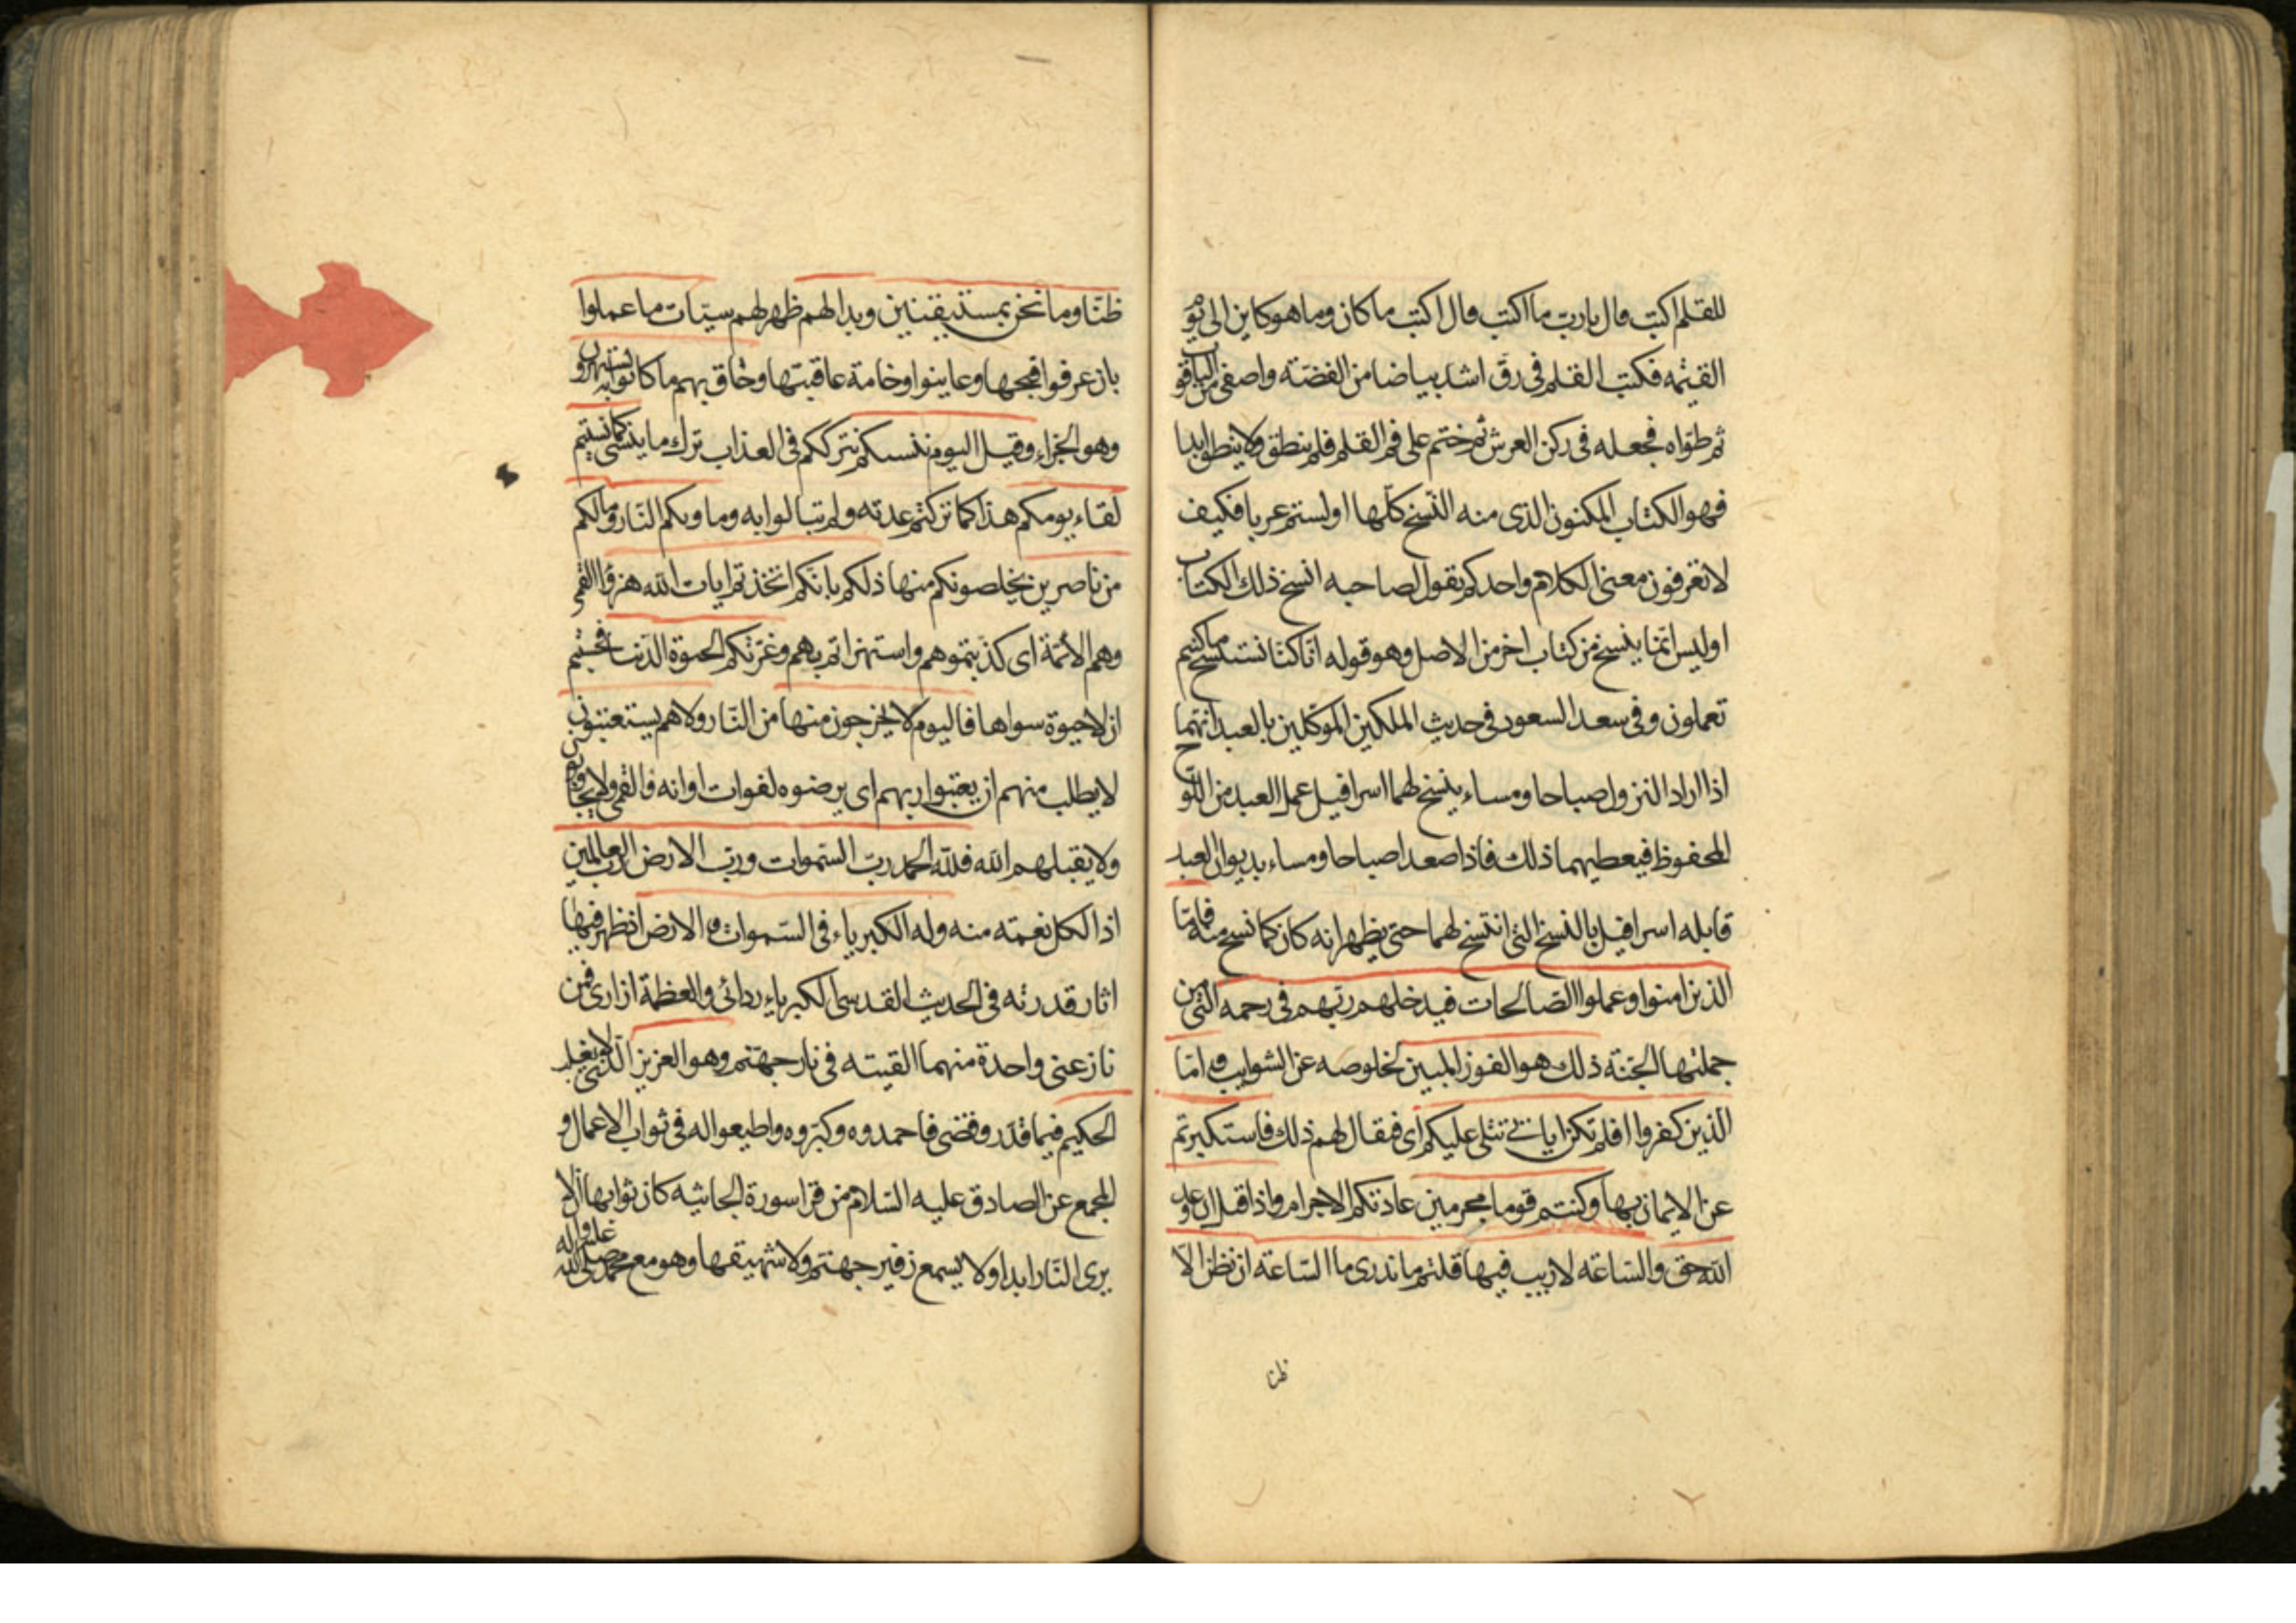 للقلم اكتب قال يا رب ما اكتب قال اكتب ما كان وما هو كاين الى يوم
القيمة فكتب القلم فى رق اشد بياضا من الفضة واصفى من الياقوت
ثم طواه فجعله فى ركن العرش ثم ختم على فم القلم فلم ينطق ولا ينطق ابدا
فهو الكتاب المكنون الذى منه النسخ كلها اولستم عربا فكيف
لا تعرفون معنى الكلام واحدكم يقول لصاحبه انسخ ذلك الكتاب
اوليس انما ينسخ من كتاب اخر من الاصل وهو قوله انا كنا نستنسخ ما كنتم
تعملون وفى سعد السعود فى حديث الملكين الموكلين بالعبد انهما
اذا اراد النزول صباحا ومساء ينسخ لهما اسرافيل عمل العبد من اللوح
المحفوظ فيعطيهما ذلك فاذا صعدا صباحا ومساء بديوان العبد
قابله اسرافيل بالنسخ التى انتسخ لهما حتى يظهر انه كان كما نسخ منه فاما
الذين امنوا وعملوا الصالحات فيدخلهم ربهم فى رحمه التى من
جملتها الجنة ذلك هو الفوز المبين لخلوصه عن الشوايب واما
الذين كفروا افلم تكن اياتى تتلى عليكم اى فيقال لهم ذلك فاستكبرتم
عن الايمان بها وكنتم قوما مجرمين عادتكم الاجرام واذا قيل ان وعد
الله حق والساعة لا ريب فيها قلتم ما ندرى ما الساعة ان نظن الا
ظنا
ظنا وما نحن بمستيقنين وبدا لهم ظهر لهم سيئات ما عملوا
بان عرفوا قبحها وعاينوا وخامة عاقبتها وحاق بهم ما كانوا به يستهزؤن
وهو الجزاء وقيل اليوم ننسيكم نترككم فى العذاب ترك ما ينسى كما نسيتم
لقاء يومكم هذا كما تركتم عدته ولم تبالوا به وماويكم النار وما لكم
من ناصرين يخلصونكم منها ذلكم بانكم اتخذتم ايات الله هزوا القمى
وهم الائمة اى كذبتموهم واستهزاتم بهم وغرتكم الحيوة الدنيا فحسبتم
ان لا حيوة سواها فاليوم لا يخرجون منها من النار ولا هم يستعتبون
لا يطلب منهم ان يعتبوا ربهم اى يرضوه لفوات اوانه والقمى ولا يجابون
ولا يقبلهم الله فلله الحمد رب السموات ورب الارض رب العالمين
اذ الكل نعمة منه وله الكبرياء فى السموات والارض اذ ظهر فيها
اثار قدرته فى الحديث القدسى الكبرياء ردائى والعظمة ازارى فمن
نازعنى واحدة منهما القيته فى نار جهنم وهو العزيز الذى لا يغلب
الحكيم فيما قدر وقضى فاحمدوه وكبروه واطيعوا له فى ثواب الاعمال و
المجمع عن الصادق عليه السلام من قرا سورة الجاثية كان ثوابها ان لا
يرى النار ابدا ولا يسمع زفير جهنم ولا شهيقها وهو مع محمد صلى الله عليه واله